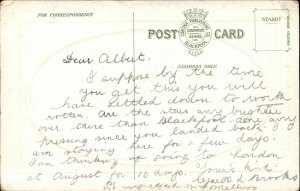 FOR CORRESPONDENCE
POST CARD
ADDRESS ONLY.
STAMP
Dear Albert,
I suppose by the time
you get this you will
have settled down to work
rotten. Are the stars any brighter
over there than Blackpool done any
pressing since you landed back. I
am staying here for a few days.
I am thinking of going to London
at August for 10 days. Yours
Brooks